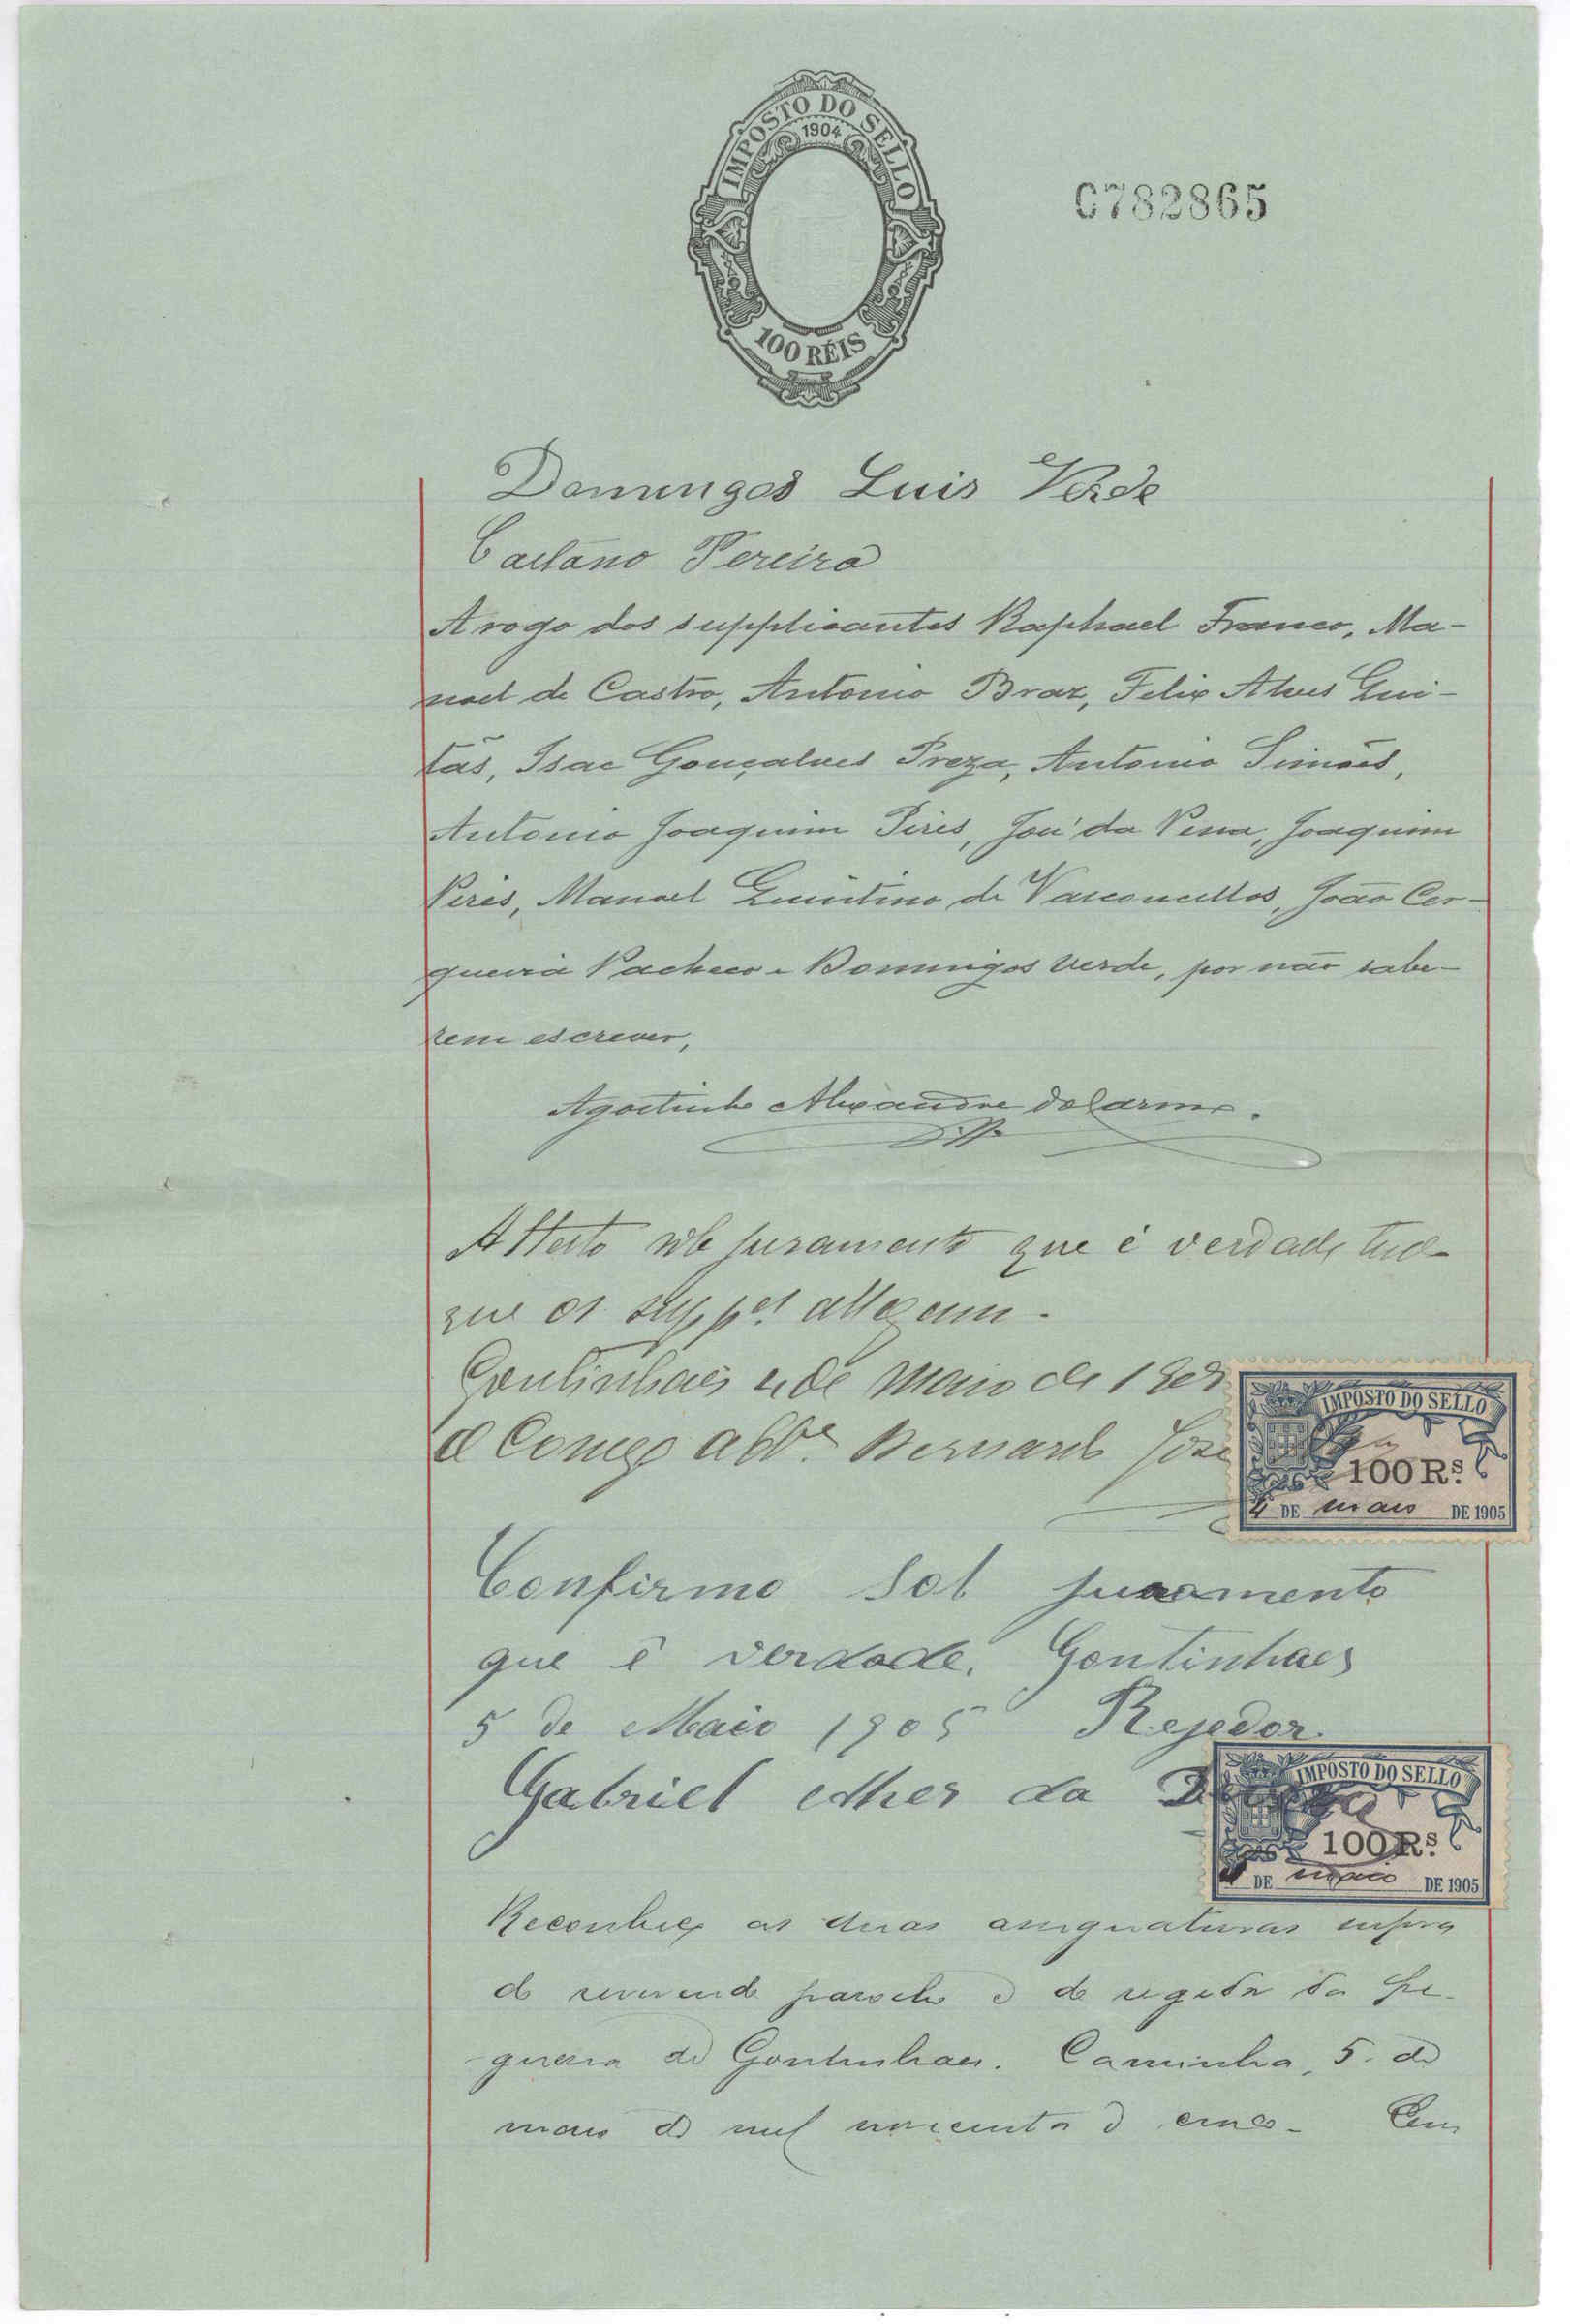 IMPOSTO DO SELLO
1904
100 RÉIS
C782865
Domingos Luis Verde
Caetano Pereira
A rogo dos supplicantes Raphael Franco, Ma-
noel de Castro, Antonio Braz, Felix Alves Qui-
tãs, Isac Gonçalves Preza, Antonio Simões,
Antonio Joaquim Pires, José da Pena, Joaquim
Pires, Manoel Quintino de Vasconcellos, João Cer-
queira Pacheco e Domingos Verde, por não sabe-
rem escrever,
Agostinho Alexandre do Carmo.
Attesto sob juramento que é verdade tudo
que os supp.es allegam.
Gontinhães 4 de Maio de 190
O Conego Abb.e Bernardo José
IMPOSTO DO SELLO
100 Rs.
4 DE maio DE 1905
Confirmo sob juramento
que é verdade. Gontinhaes
5 de Maio 1905 Rejedor.
Gabriel da
IMPOSTO DO SELLO
100 Rs.
DE maio DE 1905
Reconheço as duas assignaturas supra
do reverendo parocho e do regedor da fre-
guesia de Gontinhaes. Caminha, 5 de
maio de mil novecentos e cinco. Em